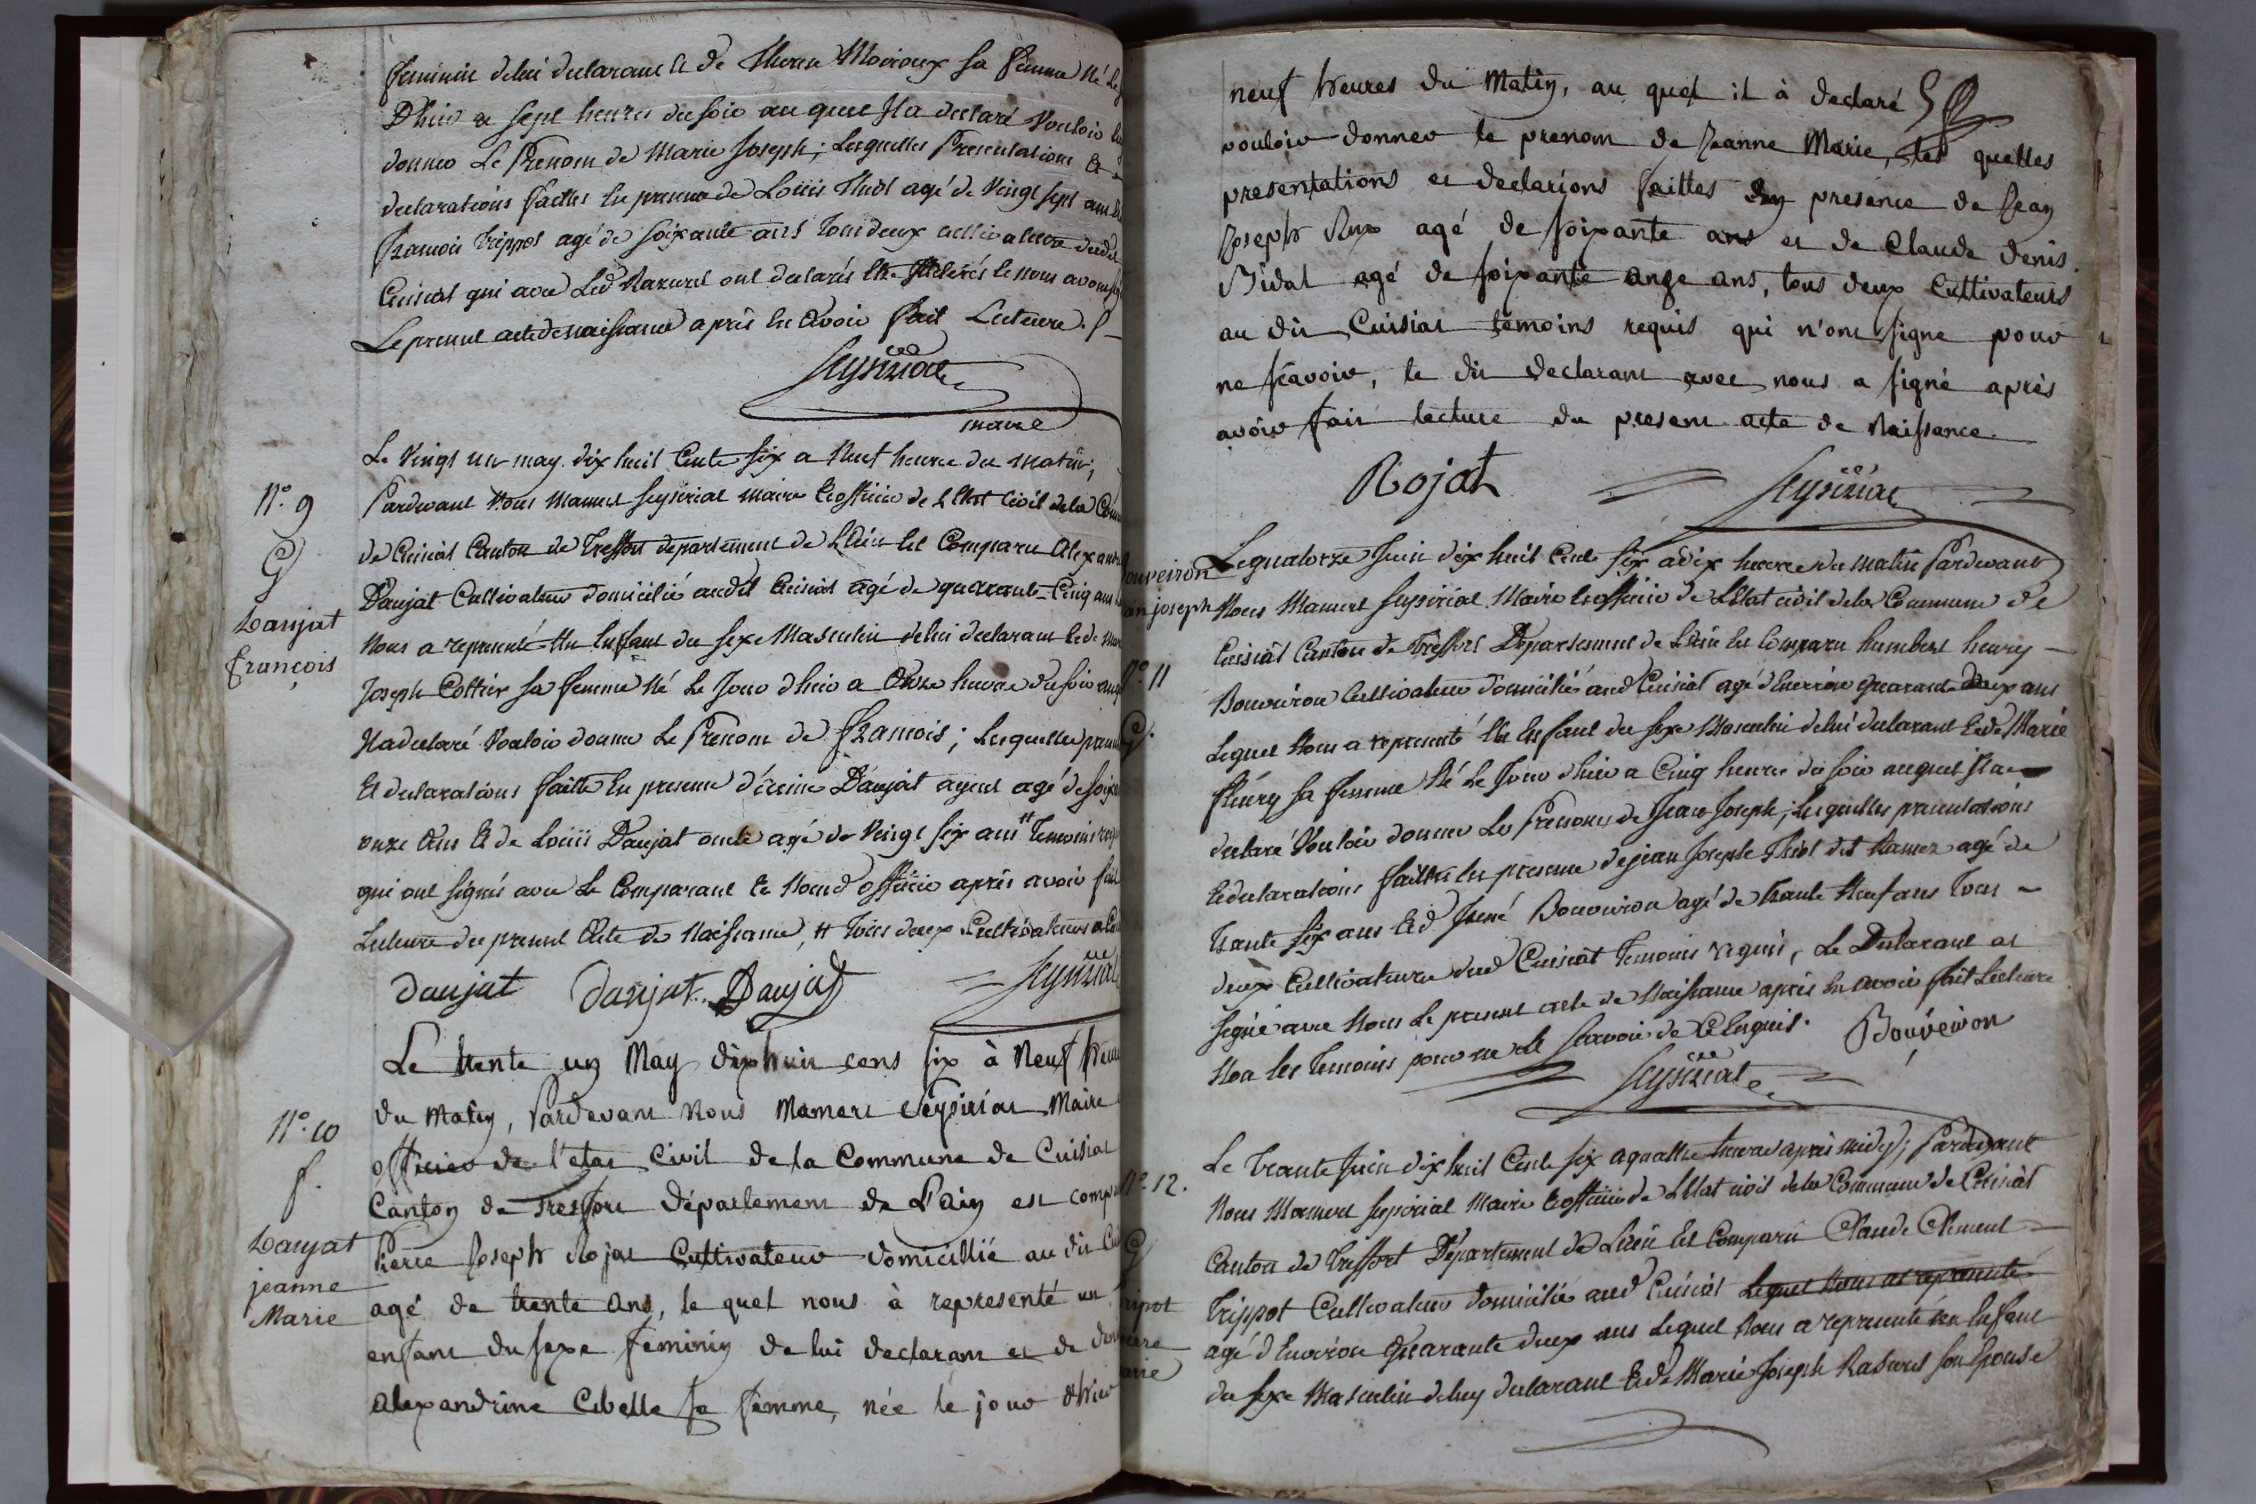 feminin delui declarant et de Moiroux sa femme Né Le
D'hier a sept heures du soir auquel Il a declaré Vouloir lui
donner Le Prenom de Marie Joseph; Lesquelles Presentations Et
declarations faittes En presence de Loüis agé de Vingt sept ans
françois Trippot agé de soixante ans Tous deux cultivateurs dud
Cuisiat qui avec Led ont declarés Etre et nous avons
Le present acte de naissance après En Avoir fait Lecture.
Seysiriat
maire
Le Vingt un may dix huit Cents six a Neuf heures du matin;
Pardevant Nous Mamert Seysiriat maire Et officier de L'Etat Civil dela Com
N.º 9
G
Danjat
françois
de Cuisiat Canton de Treffort departement de L'Ain Est Comparu Alexandre
Danjat Cultivateur domicilié audit Cuisiat agé de quarante-Cinq ans
Nous a representé Un Enfant du sexe Masculin delui declarant et de
Joseph Cottier sa femme Né Le Jour d'hier a Onze heures du soir auq
Il a declaré Vouloir donner Le Prenom de François; Lesquelles presen
Et declarations faitte En presence d'étienne Danjat ayeul agé de soix
onze Ans Et de Loüis Danjat oncle agé de Vingt six ans # Temoins req
qui ont signés avec Le Comparant Et Nousd officier après avoir fait
Lecture du present Acte de Naissance, # Tous deux Cultivateurs a
danjat danjat Danjat Seysiriat
Le trente un May dixhuit cens six à Neuf heu
du Matin, Pardevant Nous Mamert Seysiriat Maire
N.º 10
f.
Danjat
jeanne
Marie
officier de l'etat Civil de la Commune de Cuisiat
Canton de Tresfort Département de L'ain est compa
Pierre Joseph Rojat Cultivateur domicillié au dit Cui
agé de trente ans, le quel nous à representé un
enfant du sexe feminin de lui declarant et de
alexandrine Cibelle sa femme, née le jour d'hier
neuf heures du Matin, au quel il à declaré
vouloir donner le prenom de Jeanne Marie, les quelles
presentations et declarions faittes en présence de Jean
Joseph agé de soixante ans et de Claude denis
Bidal agé de soixante onze ans, tous deux Cultivateurs
au dit Cuisiat temoins requis qui n'ont signé pour
ne sçavoir, le dit declarant avec nous a signé après
avoir fait lecture du present acte de Naissance.
Rojat Seysiriat
ouveiron
an joseph
N.º 11
G.
Le quatorze Juin dix huit Cents six a dix heures du matin Pardevant
Nous Mamert Seysiriat Maire Et officier de L'Etat civil dela Commune de
Cuisiat Canton de Treffort Departement de L'ain Est Comparu humbert henry
Bouveiron Cultivateur domicilié aud Cuisiat agé d'Environ quarante deux ans
Lequel Nous a representé Un Enfant du sexe Masculin delui declarant Et de Marie
fleury sa femme Né Le Jour d'hier a Cinq heures du soir auquel Il a
declaré Vouloir donner Les Prenoms de Jean Joseph; Lesquelles presentations
Et declarations faittes En presence de jean Joseph dit agé de
Trante six ans Et d Bouveiron agé de Trante Neuf ans Tous
deux Cultivateurs dud Cuisiat Temoins requis, Le Declarant a
signé avec Nous Le present acte de Naissance après En avoir fait Lecture
Non Les Temoins pour ne Le Scavoir de Ce Enquis.
Bouveiron
Seysiriat
N.º 12.
G
Tripot
arie
Le Trante Juin dix huit Cents six a quattre heures après midy; Pardevant
Nous Mamert Seysiriat Maire Et officier de L'Etat civil dela Commune de Cuisiat
Canton de Treffort Département de L'ain Est Comparu Claude Clement
Trippot Cultivateur domicilié aud Cuisiat Lequel Nous a representé
agé d'Environ Quarante deux ans Lequel Nous a representé un Enfant
du sexe Masculin deluy declarant Et de Marie Joseph Rasurel son Epouse